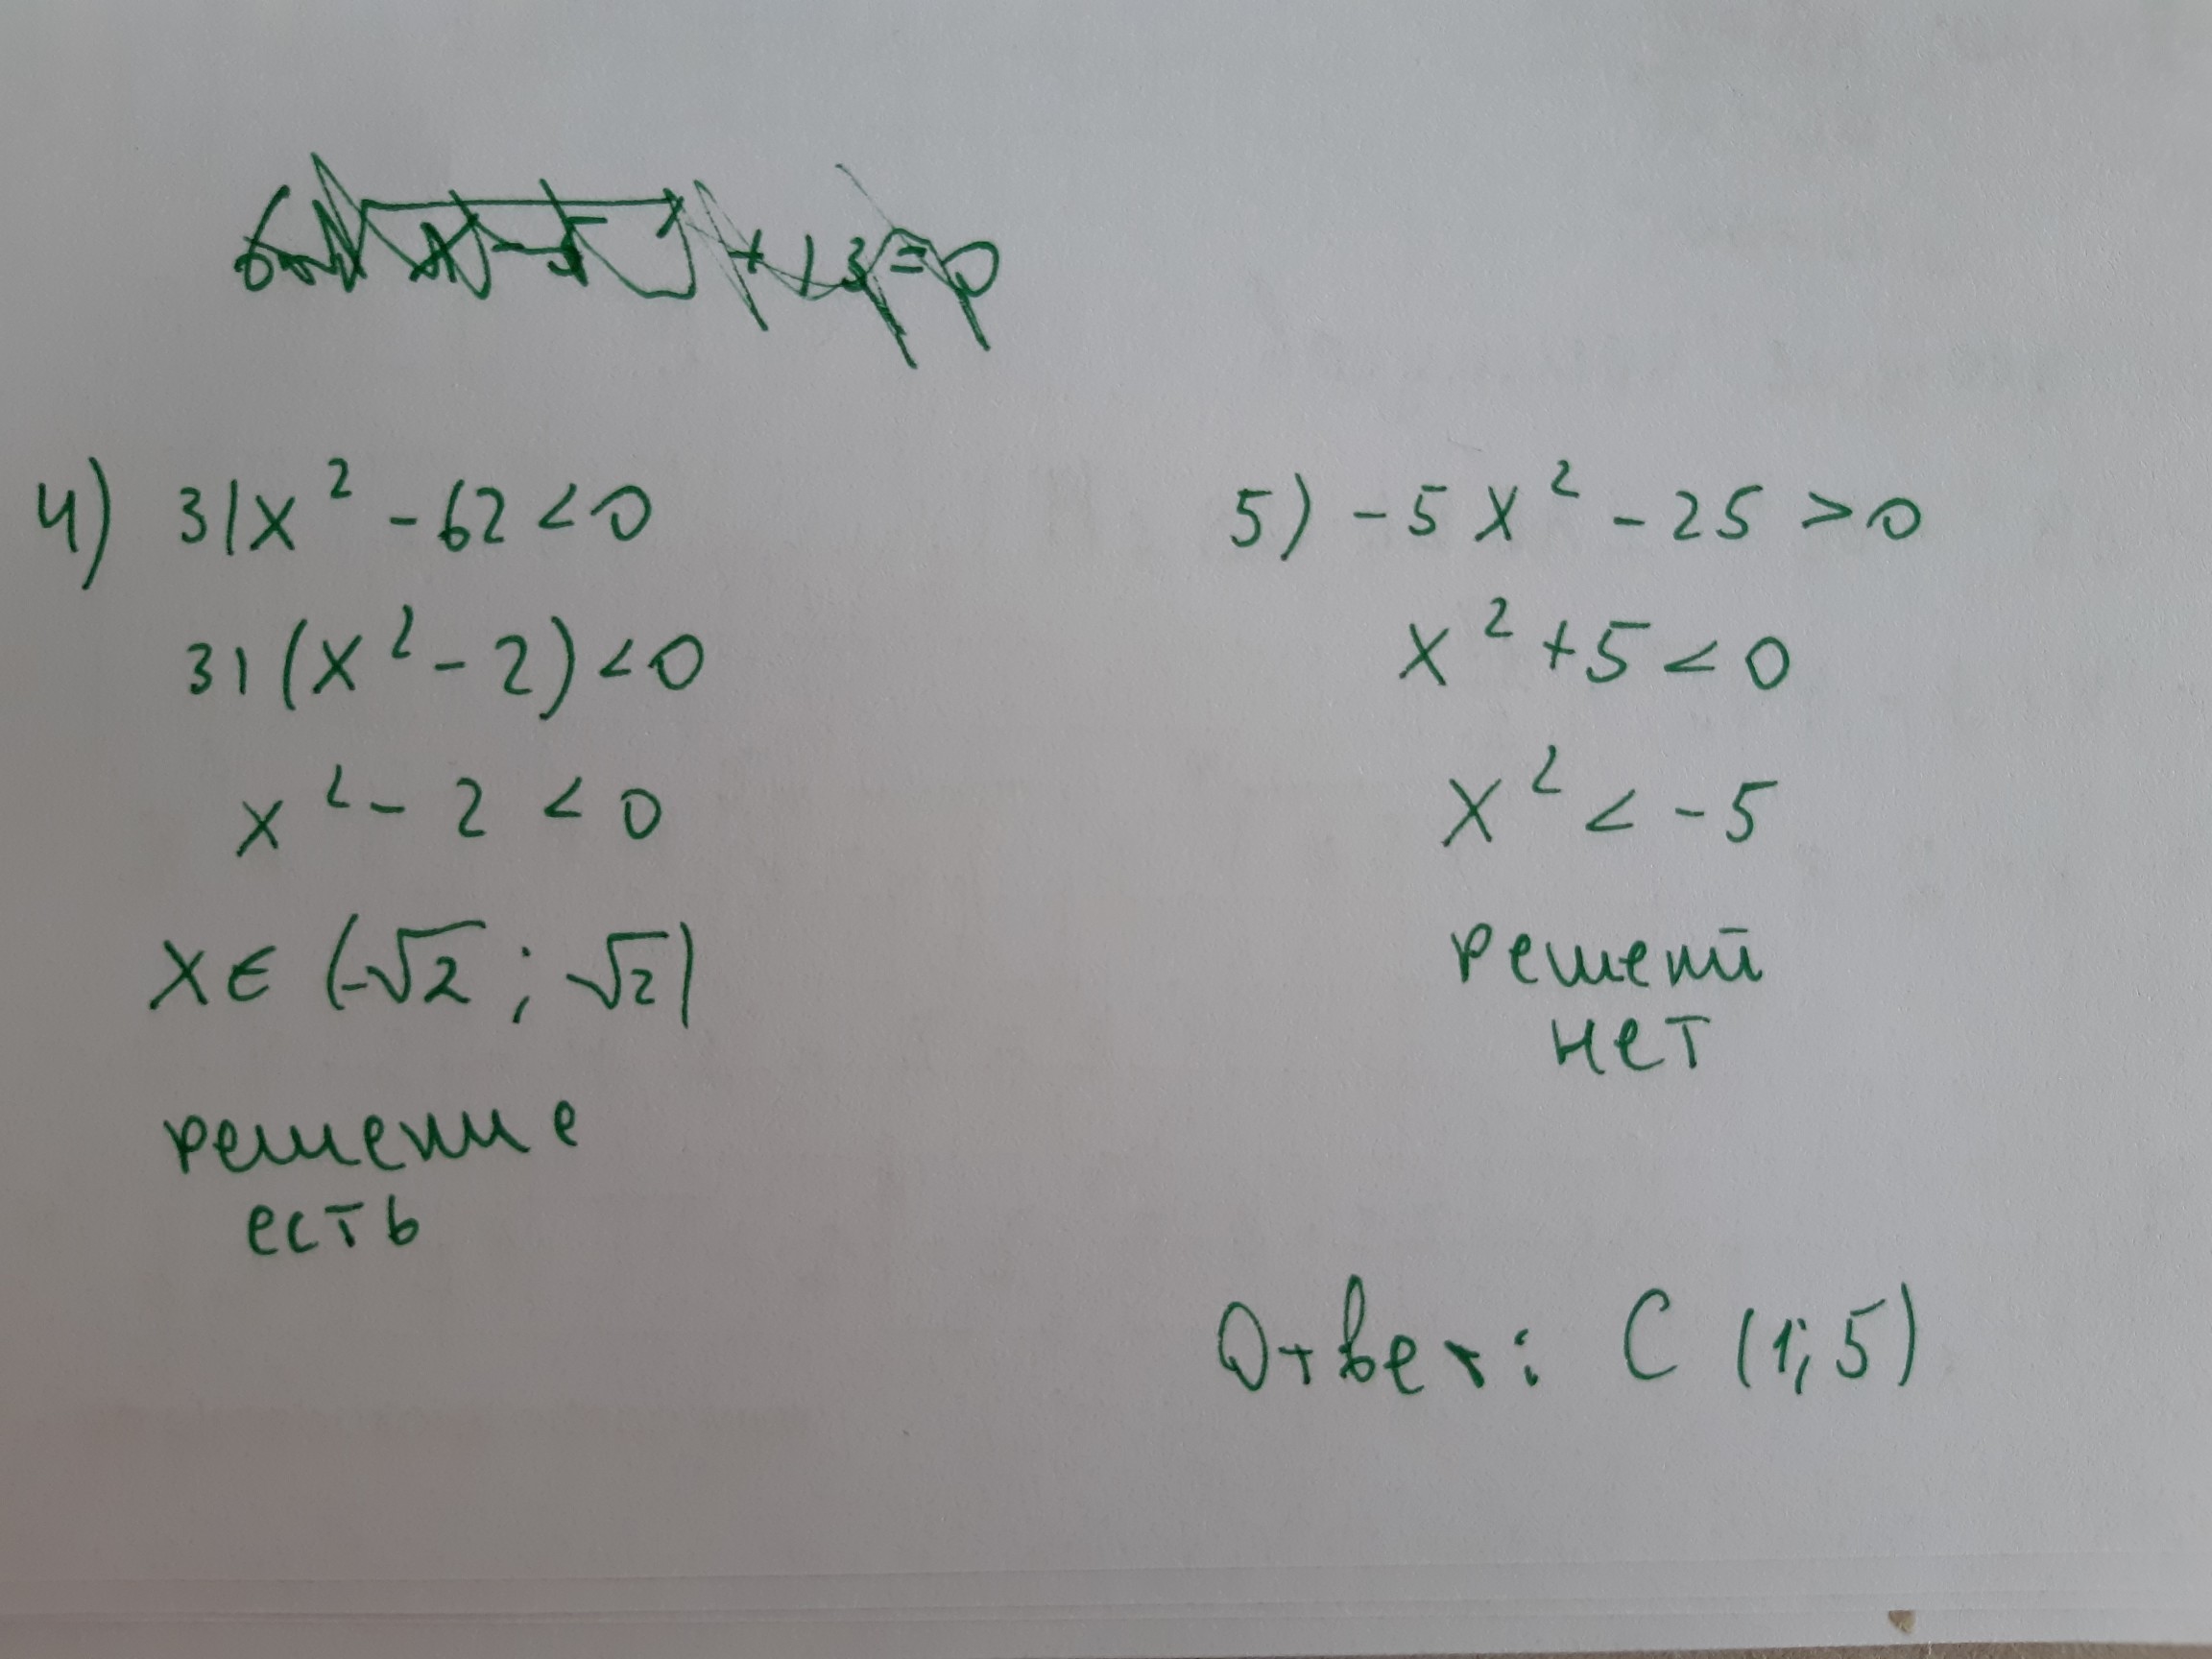 4) 31x² - 62 < 0
31(x² - 2) < 0
x² - 2 < 0
x ∈ (-√2 ; √2)
решение
есть
5) -5x² - 25 > 0
x² + 5 < 0
x² < -5
решений
нет
Ответ: C (1; 5)